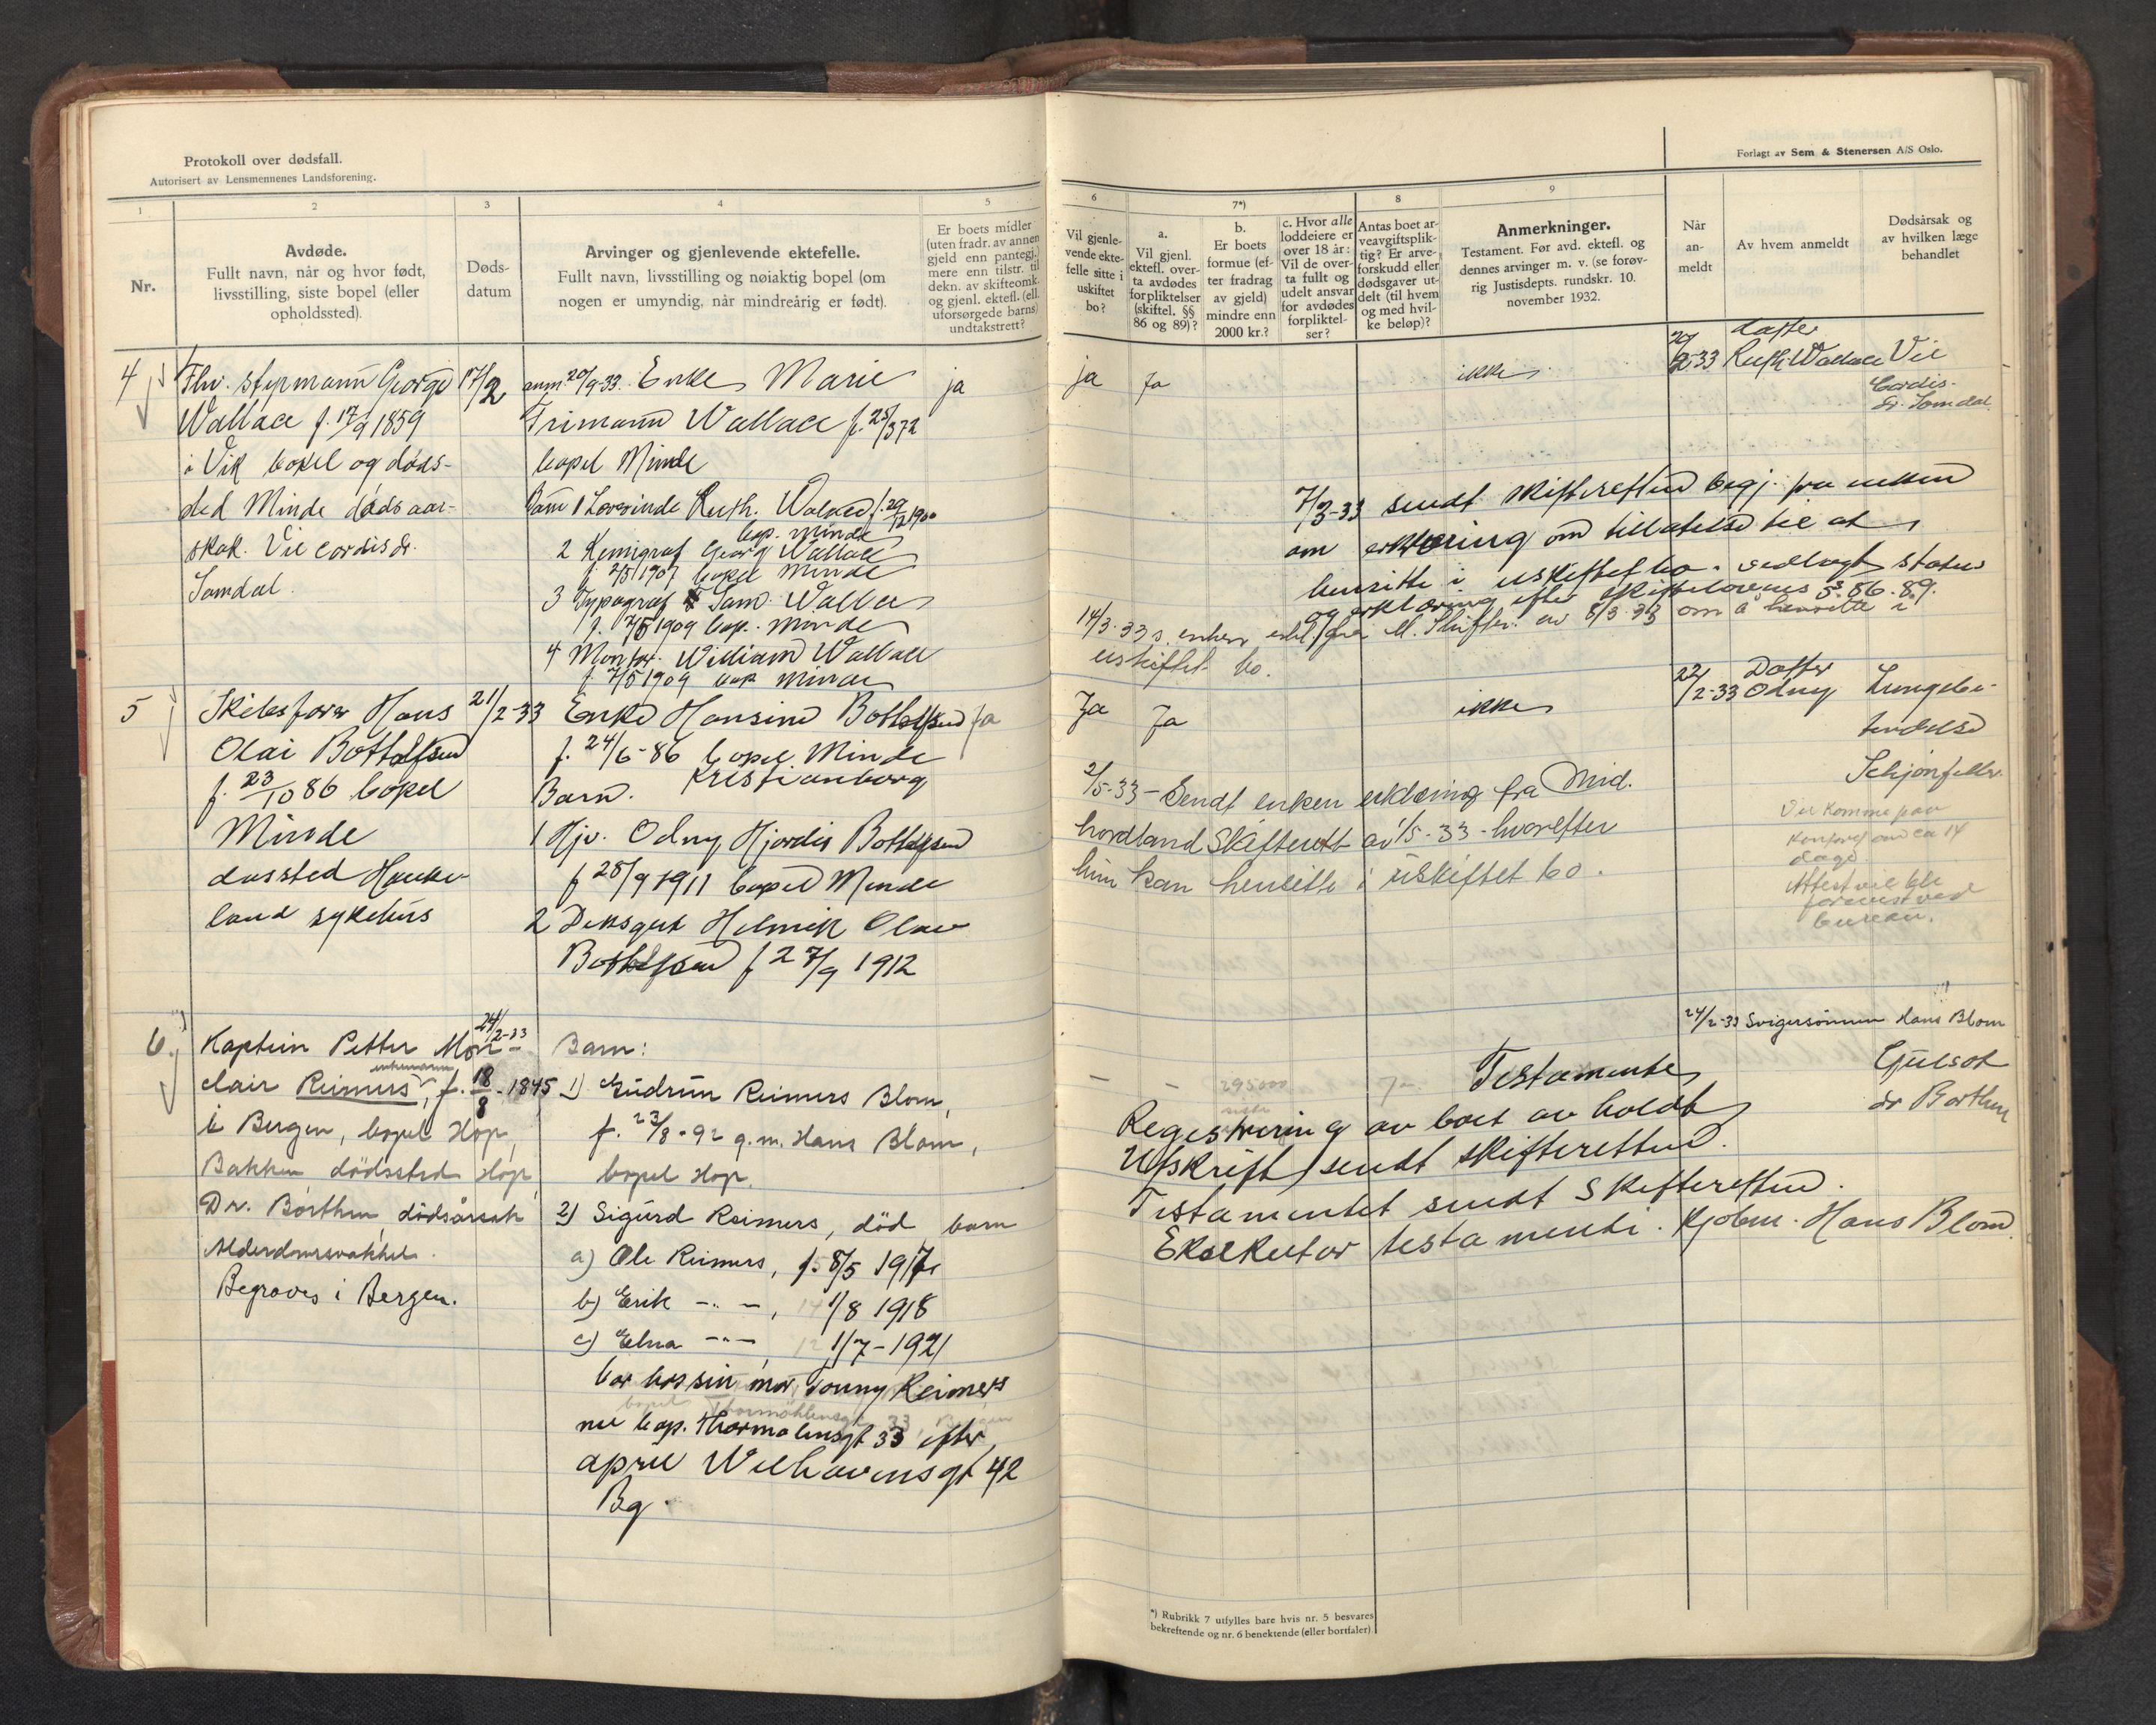 Protokoll over dødsfall.
Autorisert av Lensmennenes Landsforening.
1
2
3
4
5
Nr.
Avdøde.
Fullt navn, når og hvor født,
livsstilling, siste bopel (eller
opholdssted).
Døds-
datum
Arvinger og gjenlevende ektefelle.
Fullt navn, livsstilling og nøiaktig bopel (om
nogen er umyndig, når mindreårig er født).
Er boets midler
(uten fradr. av annen
gjeld enn pantegj.)
mere enn tilstr. til
dekn. av skifteomk.
og gjenl. ektef. (ell.
uforsørgede barns)
undtakstrett?
4
Fhv. styrmann George
Wallace f. 17/9 1859
i Vik bopel og døds-
sted Minde dødsaar-
sak. Vic cordis dr.
Somdal.
17/2
anm. 20/9-33. Enke Marie
Trimann Wallace f. 25/3 72
bopel Minde
Barn 1 Lærerinde Ruth. Wallace f. 29/12 1900
bop. Minde
2 Kemigraf Georg Wallace
f. 2/5 1907 bopel Minde
3 Typograf Sam. Wallace
f. 7/5 1909 bop. Minde
4 Montør. William Wallace
f. 7/5 1909 bop Minde
ja
5
Skibsfører Hans
Olai Bottolfsen
f. 23/10 86 bopel
Minde
dødssted Hauke-
land sykehus
21/2-33
Enke Hansine Bottolfsen
f. 24/6-86 bopel Minde
Kristianborg
Barn.
1 Hjv. Odny Hjordis Bottolfsen
f 28/9 1911 bopel Minde
2 Deksgut Helmik Olav
Bottolfsen f 27/9 1912
ja
6.
Kaptein Petter Mon-
enkemann
clair Reimers, f. 18/8 - 1845
i Bergen, bopel Hop,
Bakken dödssted Hop,
Dr. Borthen dödsårsak
Alderdomssvakhet.
Begraves i Bergen.
24/2-33
Barn:
1) Gudrun Reimers Blom,
f. 23/8-92 g.m. Hans Blom,
bopel Hop.
2) Sigurd Reimers, död barn
a) Ole Reimers, f. 8/5 1917
b) Erik -"-, 14 1/8 1918
c) Elna -"- 12 1/7-1921
bor hos sin mor, Tonny Reimers
bopel Thormöhlensgt 33, Bergen
nu bop. Thormølensgt 33 efter
april Welhavensgt 42
Bg.
Forlagt av Sem & Stenersen A/S Oslo.
6
7*)
8
9
Vil gjenle-
vende ekte-
felle sitte i
uskiftet
bo?
a.
Vil gjenl.
ektefl. over-
ta avdødes
forpliktelser
(skiftel. §§
86 og 89)?
b.
Er boets
formue (ef-
ter fradrag
av gjeld)
mindre enn
2000 kr.?
c. Hvor alle
loddeiere er
over 18 år:
Vil de over-
ta fullt og
udelt ansvar
for avdødes
forpliktel-
ser?
Antas boet ar-
veavgiftsplik-
tig? Er arve-
forskudd eller
dødsgaver ut-
delt (til hvem
og med hvil-
ke beløp)?
Anmerkninger.
Testament. Før avd. ektefl. og
dennes arvinger m. v. (se forøv-
rig Justisdepts. rundskr. 10.
november 1932.
Når
an-
meldt
Av hvem anmeldt
Dødsårsak og
av hvilken læge
behandlet
ja
Ja
ikke
20/2-33
datter
Ruth Wallace
Vic
Cordis.
dr. Somdal.
7/3-33 sendt skifteretten begj. fra enken
om erklæring om tillatelse til at
hensitte i uskiftet bo. vedlagt status
og erklæring efter skiftelovens §§ 86.89.
14/3.33 s. enken erkl. fra M. Skifter. av 8/3 33 om å hensitte i
uskiftet bo.
Ja
Ja
ikke
22/2-33
Datter
Odny
Lungebe-
tendelse
Schjønfeldr.
2/5-33 - Sendt enken erklæring fra Mid.
hordland Skifterett av 1/5-33 - hvorefter
hun kan hensitte i uskiftet bo.
Vil komme paa
kontoret om ca 14
dage.
Attest vil bli
forevist ved
bureau.
24/2-33 Svigersönnen Hans Blom
295000
ja
Testamente
Gulsot
dr Borthen
Registrering av boet av holdt
Utskrift sendt skifteretten.
Testamentet sendt skifteretten.
Eksekutor testamenti. Kjøbm. Hans Blom.
*) Rubrikk 7 utfylles bare hvis nr. 5 besvares
bekreftende og nr. 6 benektende (eller bortfaler)